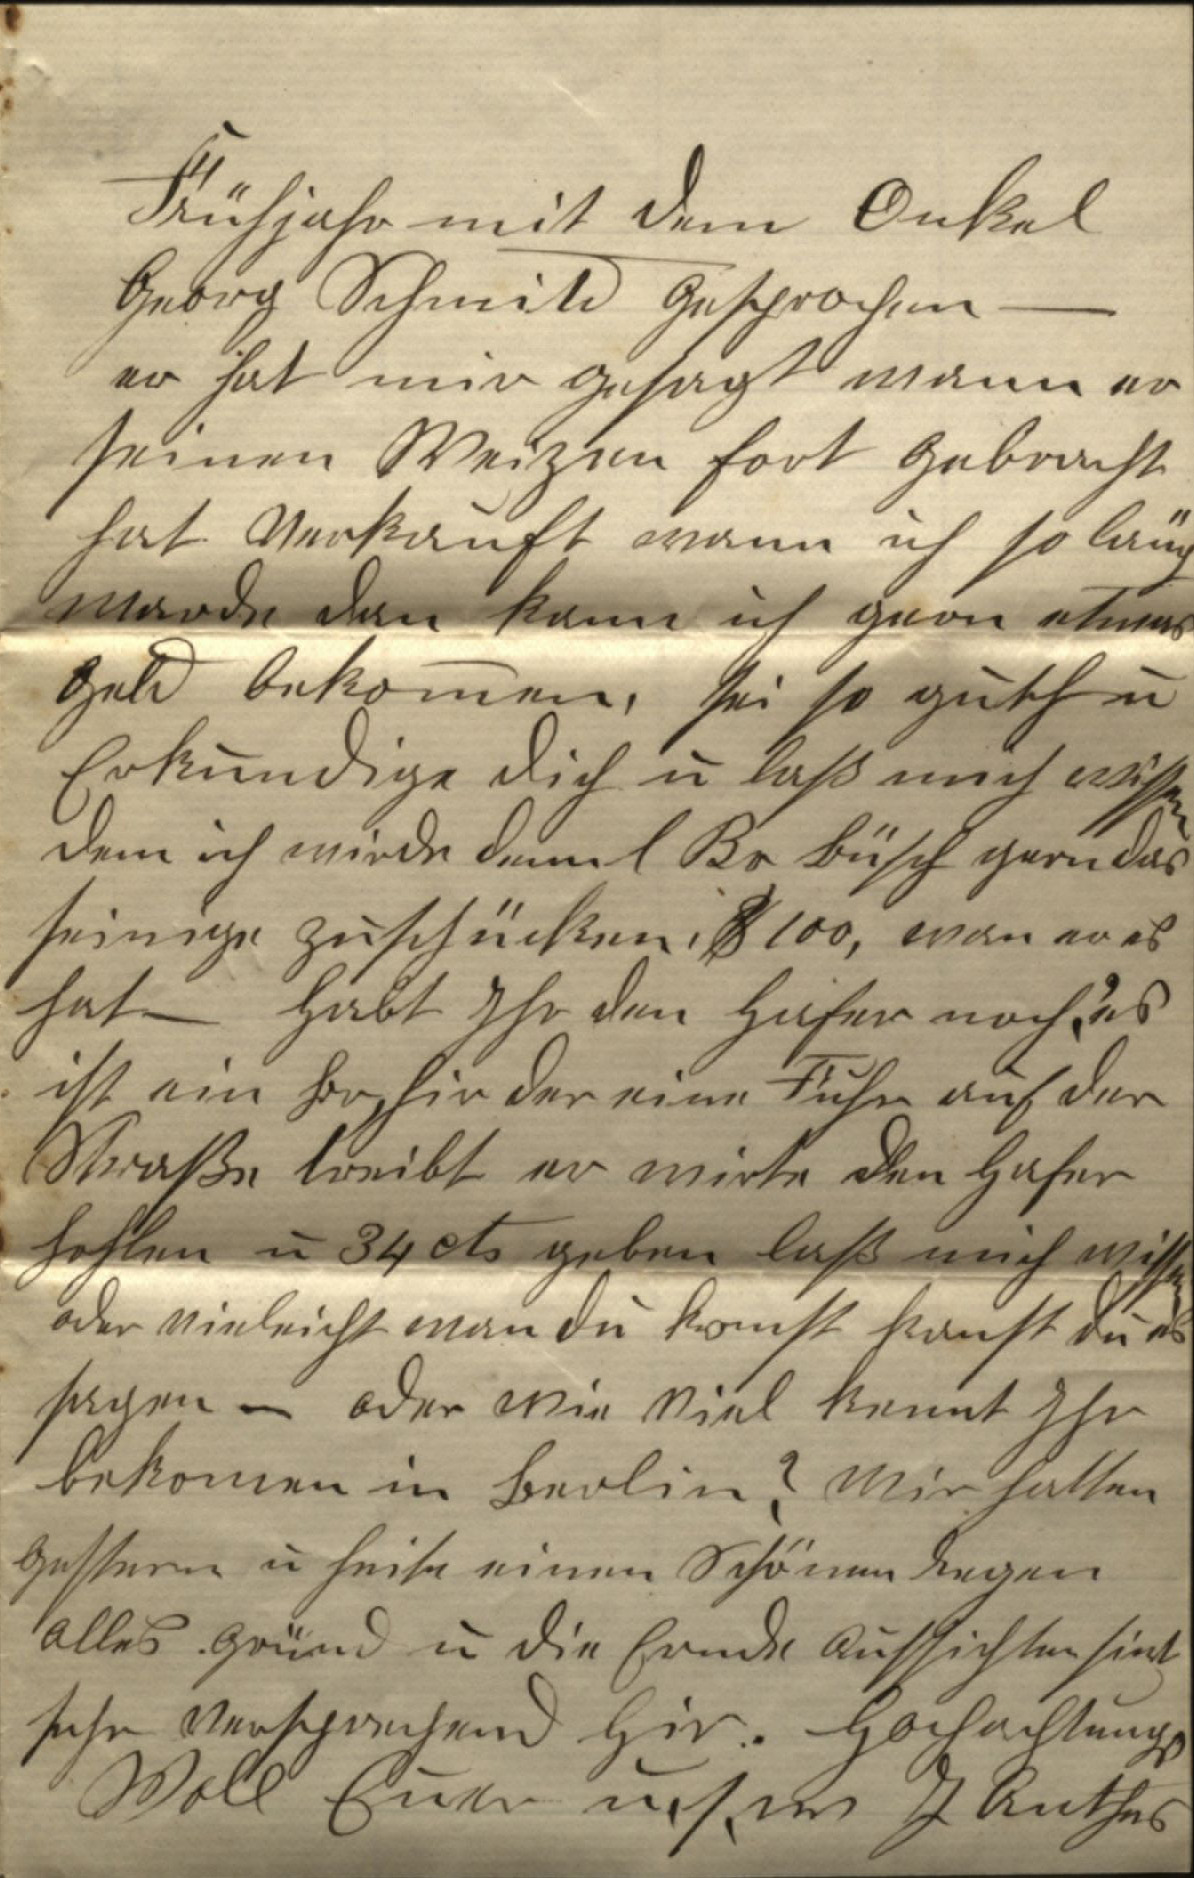 Frühjahr mit dem Onkel
Georg Schmitd Gesprochen —
er hat mir gesagt wann er
seinen Weizen fort Gebracht
hat Verkauft wann ich so lang
warde dan kann ich gern etwas
Geld bekomen, sei so guth u
Erkundige dich u laß mich wissen
dem ich wirde dem l Br Büsch gern das
seinige zuschücken, $100, wan er es
hat — Habt Ihr den Hafer noch? es
ist ein Br hir der eine Fuhr auf der
Straße treibt er wirte den Hafer
hohlen u 34 cts geben laß mich wissen
oder vieleicht wan du komst kanst du es
sagen — oder wie viel kennt Ihr
bekomen in Berlin? Wir hatten
Gestern u heite einen Schönen Regen
alles gründ u die Ernde Aussichten sint
sehr versprechend hir. Hochachtungs
Woll Euer u. s. w J Anthes